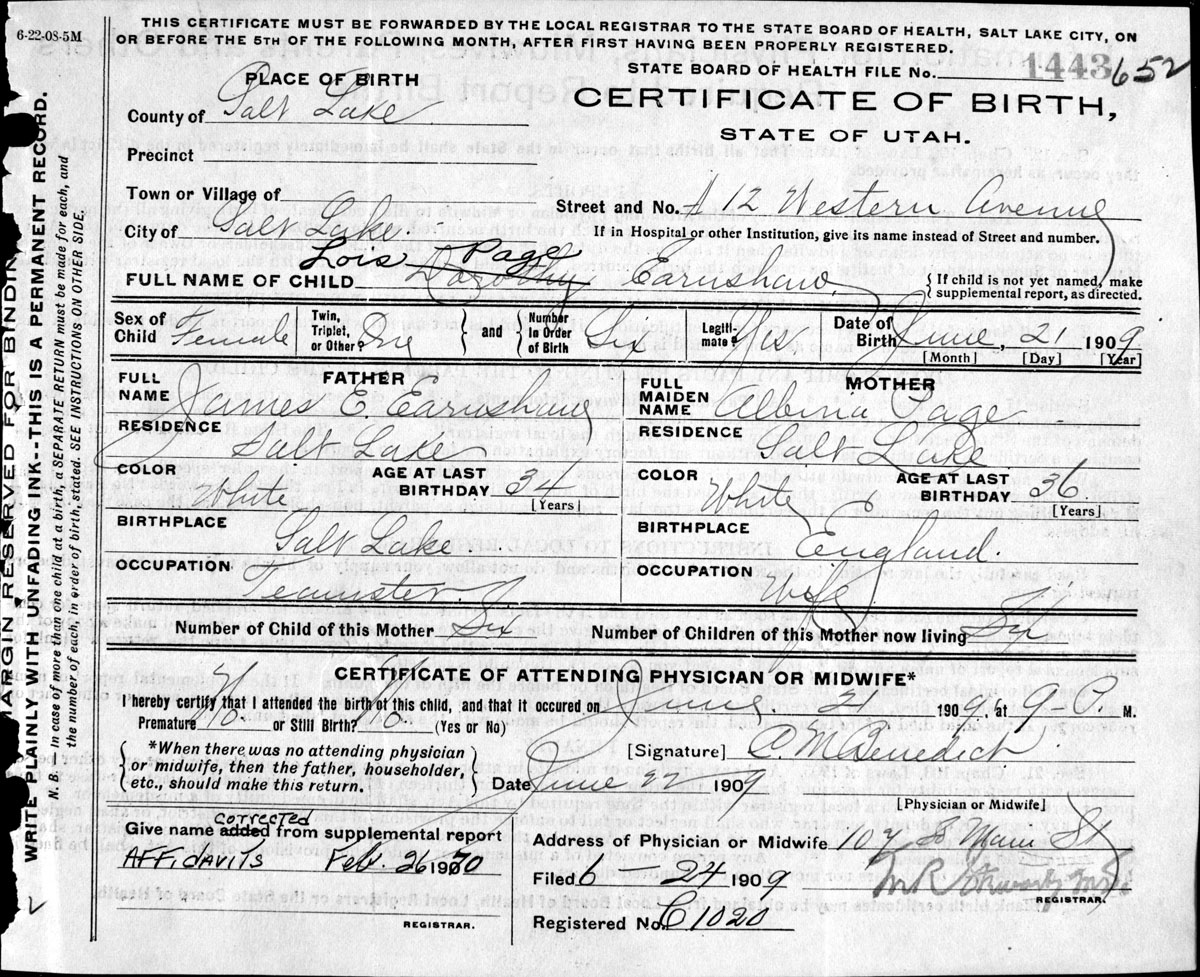 6-22-08-5M
THIS CERTIFICATE MUST BE FORWARDED BY THE LOCAL REGISTRAR TO THE STATE BOARD OF HEALTH, SALT LAKE CITY, ON
OR BEFORE THE 5TH OF THE FOLLOWING MONTH, AFTER FIRST HAVING BEEN PROPERLY REGISTERED.
STATE BOARD OF HEALTH FILE No. 1443 652
PLACE OF BIRTH
CERTIFICATE OF BIRTH,
STATE OF UTAH.
County of Salt Lake
Precinct
Town or Village of
Street and No. # 12 Western Avenue
City of Salt Lake
If in Hospital or other Institution, give its name instead of Street and number.
Lois Page
FULL NAME OF CHILD Dorothy Earnshaw
If child is not yet named, make
supplemental report, as directed.
Sex of Child Female
Twin, Triplet, or Other? One
and
Number in Order of Birth Six
Legiti-mate? Yes
Date of Birth June, 21 1909
[Month] [Day] [Year]
FATHER
FULL NAME James E. Earnshaw
RESIDENCE Salt Lake
COLOR White
AGE AT LAST BIRTHDAY 34
[Years]
BIRTHPLACE Salt Lake
OCCUPATION Teamster
MOTHER
FULL MAIDEN NAME Albina Page
RESIDENCE Salt Lake
COLOR White
AGE AT LAST BIRTHDAY 36
[Years]
BIRTHPLACE England.
OCCUPATION Wife
Number of Child of this Mother Six
Number of Children of this Mother now living Six
CERTIFICATE OF ATTENDING PHYSICIAN OR MIDWIFE*
I hereby certify that I attended the birth of this child, and that it occured on June 21 1909, at 9- P. M.
Premature No. or Still Birth? No (Yes or No)
*When there was no attending physician
or midwife, then the father, householder,
etc., should make this return.
[Signature] C M Benedict
Date June 22 1909
[Physician or Midwife]
corrected
Give name added from supplemental report
AFFIDAVITS Feb. 26 1970
REGISTRAR.
Address of Physician or Midwife 107 S Main St
Filed 6 24 1909
REGISTRAR.
Registered No. C1020
MARGIN RESERVED FOR BINDING
WRITE PLAINLY WITH UNFADING INK--THIS IS A PERMANENT RECORD.
N. B. In case of more than one child at a birth, a SEPARATE RETURN must be made for each, and
the number of each, in order of birth, stated. SEE INSTRUCTIONS ON OTHER SIDE.